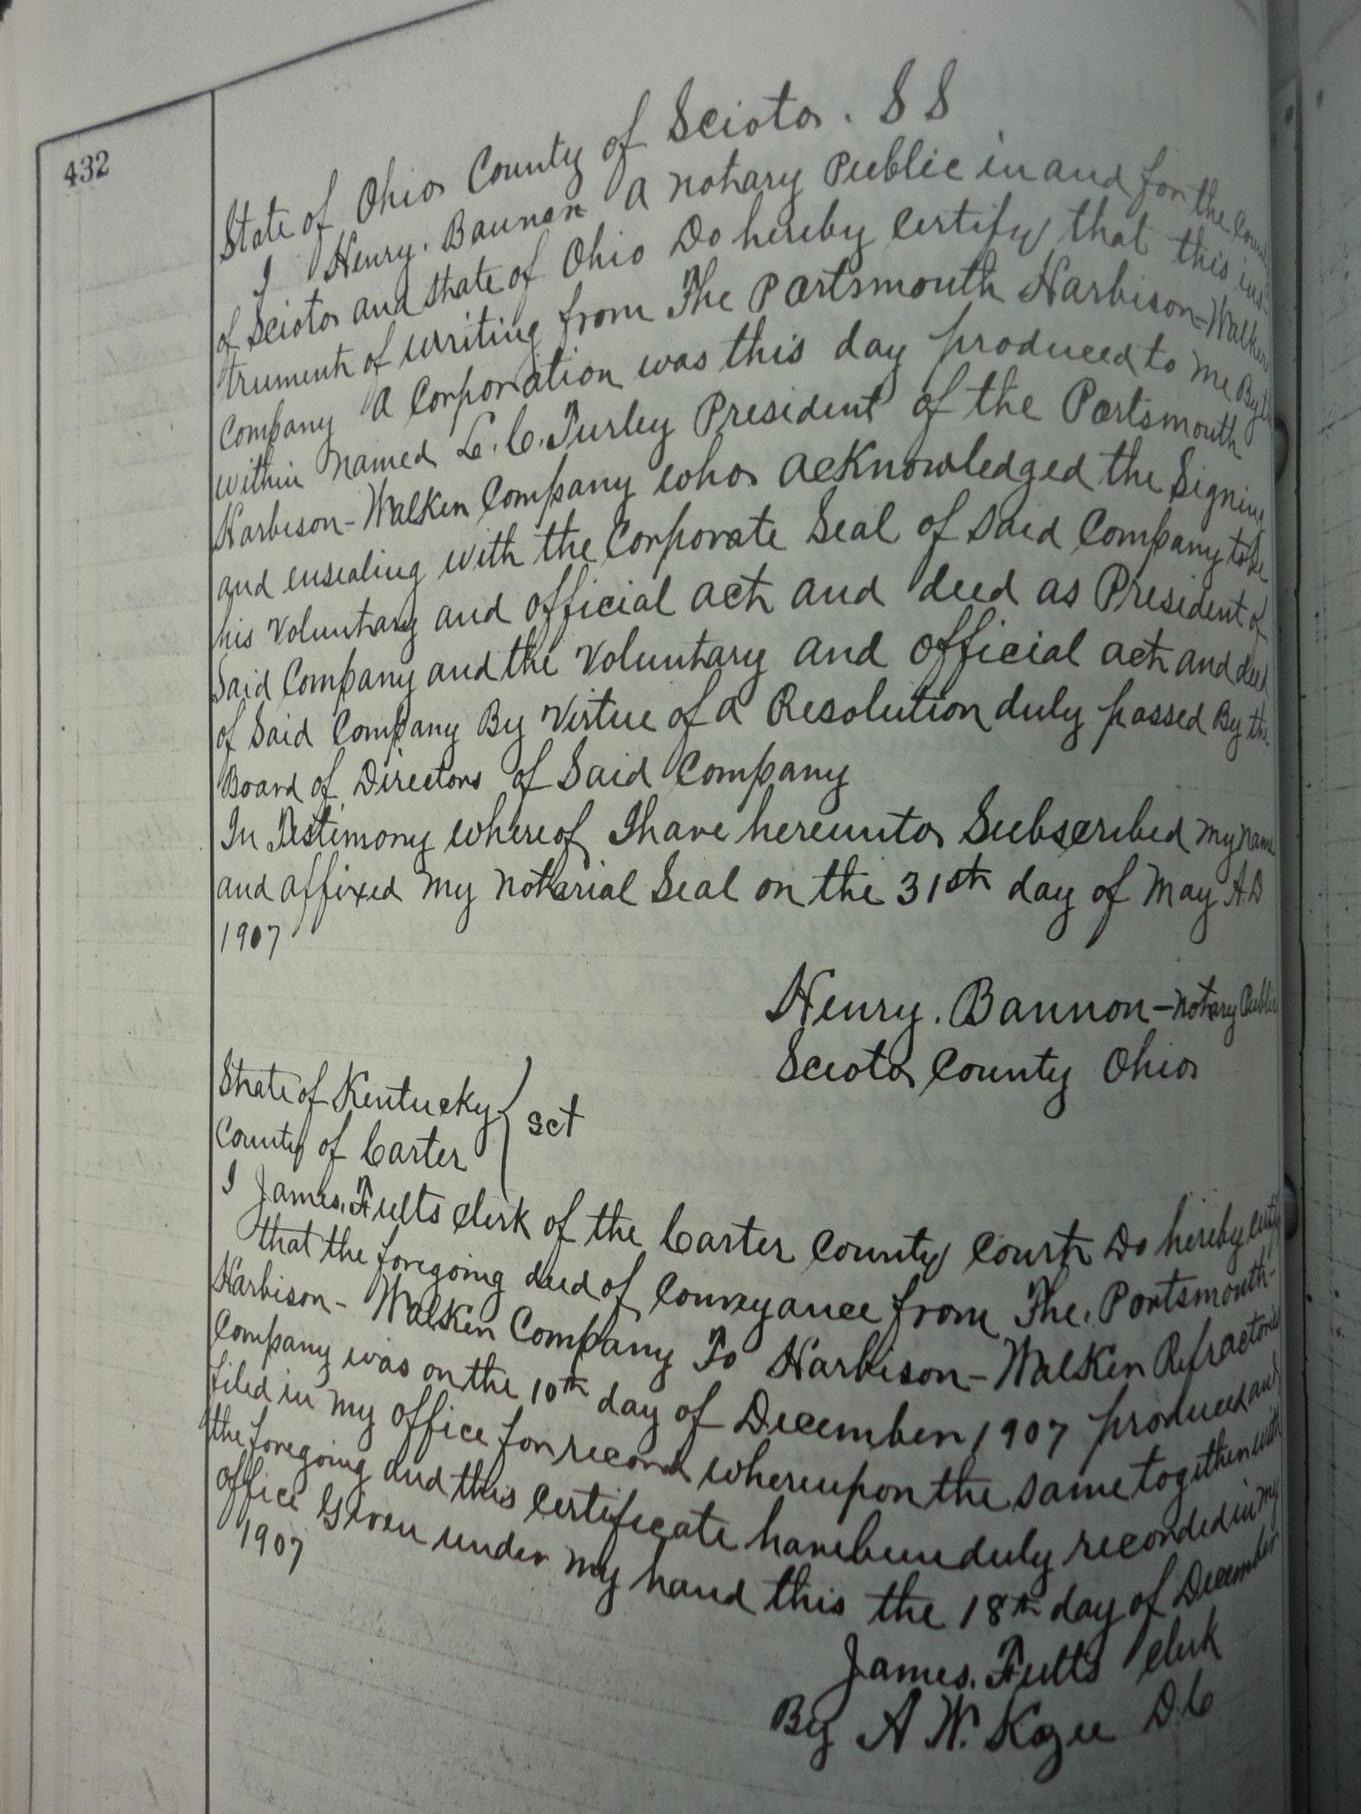 432
State of Ohio County of Scioto. SS
I Henry. Bannon a notary Public in and for the
of Scioto and state of Ohio Do hereby certify that this ins-
trument of writing from The Portsmouth Harbison-Walker
Company A Corporation was this day produced to me By the
within named L. C. Turley President of the Portsmouth
Harbison-Walker Company who acknowledged the Signing
and ensealing with the Corporate Seal of said Company to be
his Voluntary and official act and deed as President of
Said Company and the Voluntary and official act and deed
of Said Company By Virtue of a Resolution duly passed By the
Board of Directors of Said Company
In Testimony whereof I have hereunto Subscribed my name
and affixed my notarial Seal on the 31st day of May A.D
1907
Henry. Bannon-notary Public
Scioto County Ohio
State of Kentucky
County of Carter } sct
I James. Fults clerk of the Carter County Court Do hereby certify
that the foregoing deed of Conveyance from The. Portsmouth-
Harbison- Walker Company To Harbison-Walker Refractories
Company was on the 10th day of December 1907 produced and
filed in my office for record whereupon the same together with
the foregoing and this certificate have been duly recorded in my
office Given under my hand this the 18th day of December
1907
James. Fults Clerk
By A W. Kozee D.C